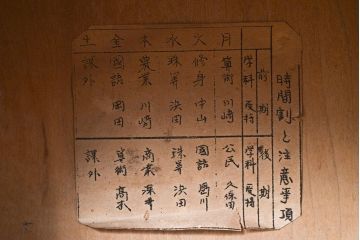 時間割と注意事項
前期 後期
学科 受持 学科 受持
月 算術 川崎 公民 久保田
火 修身 中山 國語 岡川
水 珠算 浜田 珠算 浜田
木 農業 川崎 商業 深井
金 國語 岡田 算術 髙木
土 課外 課外